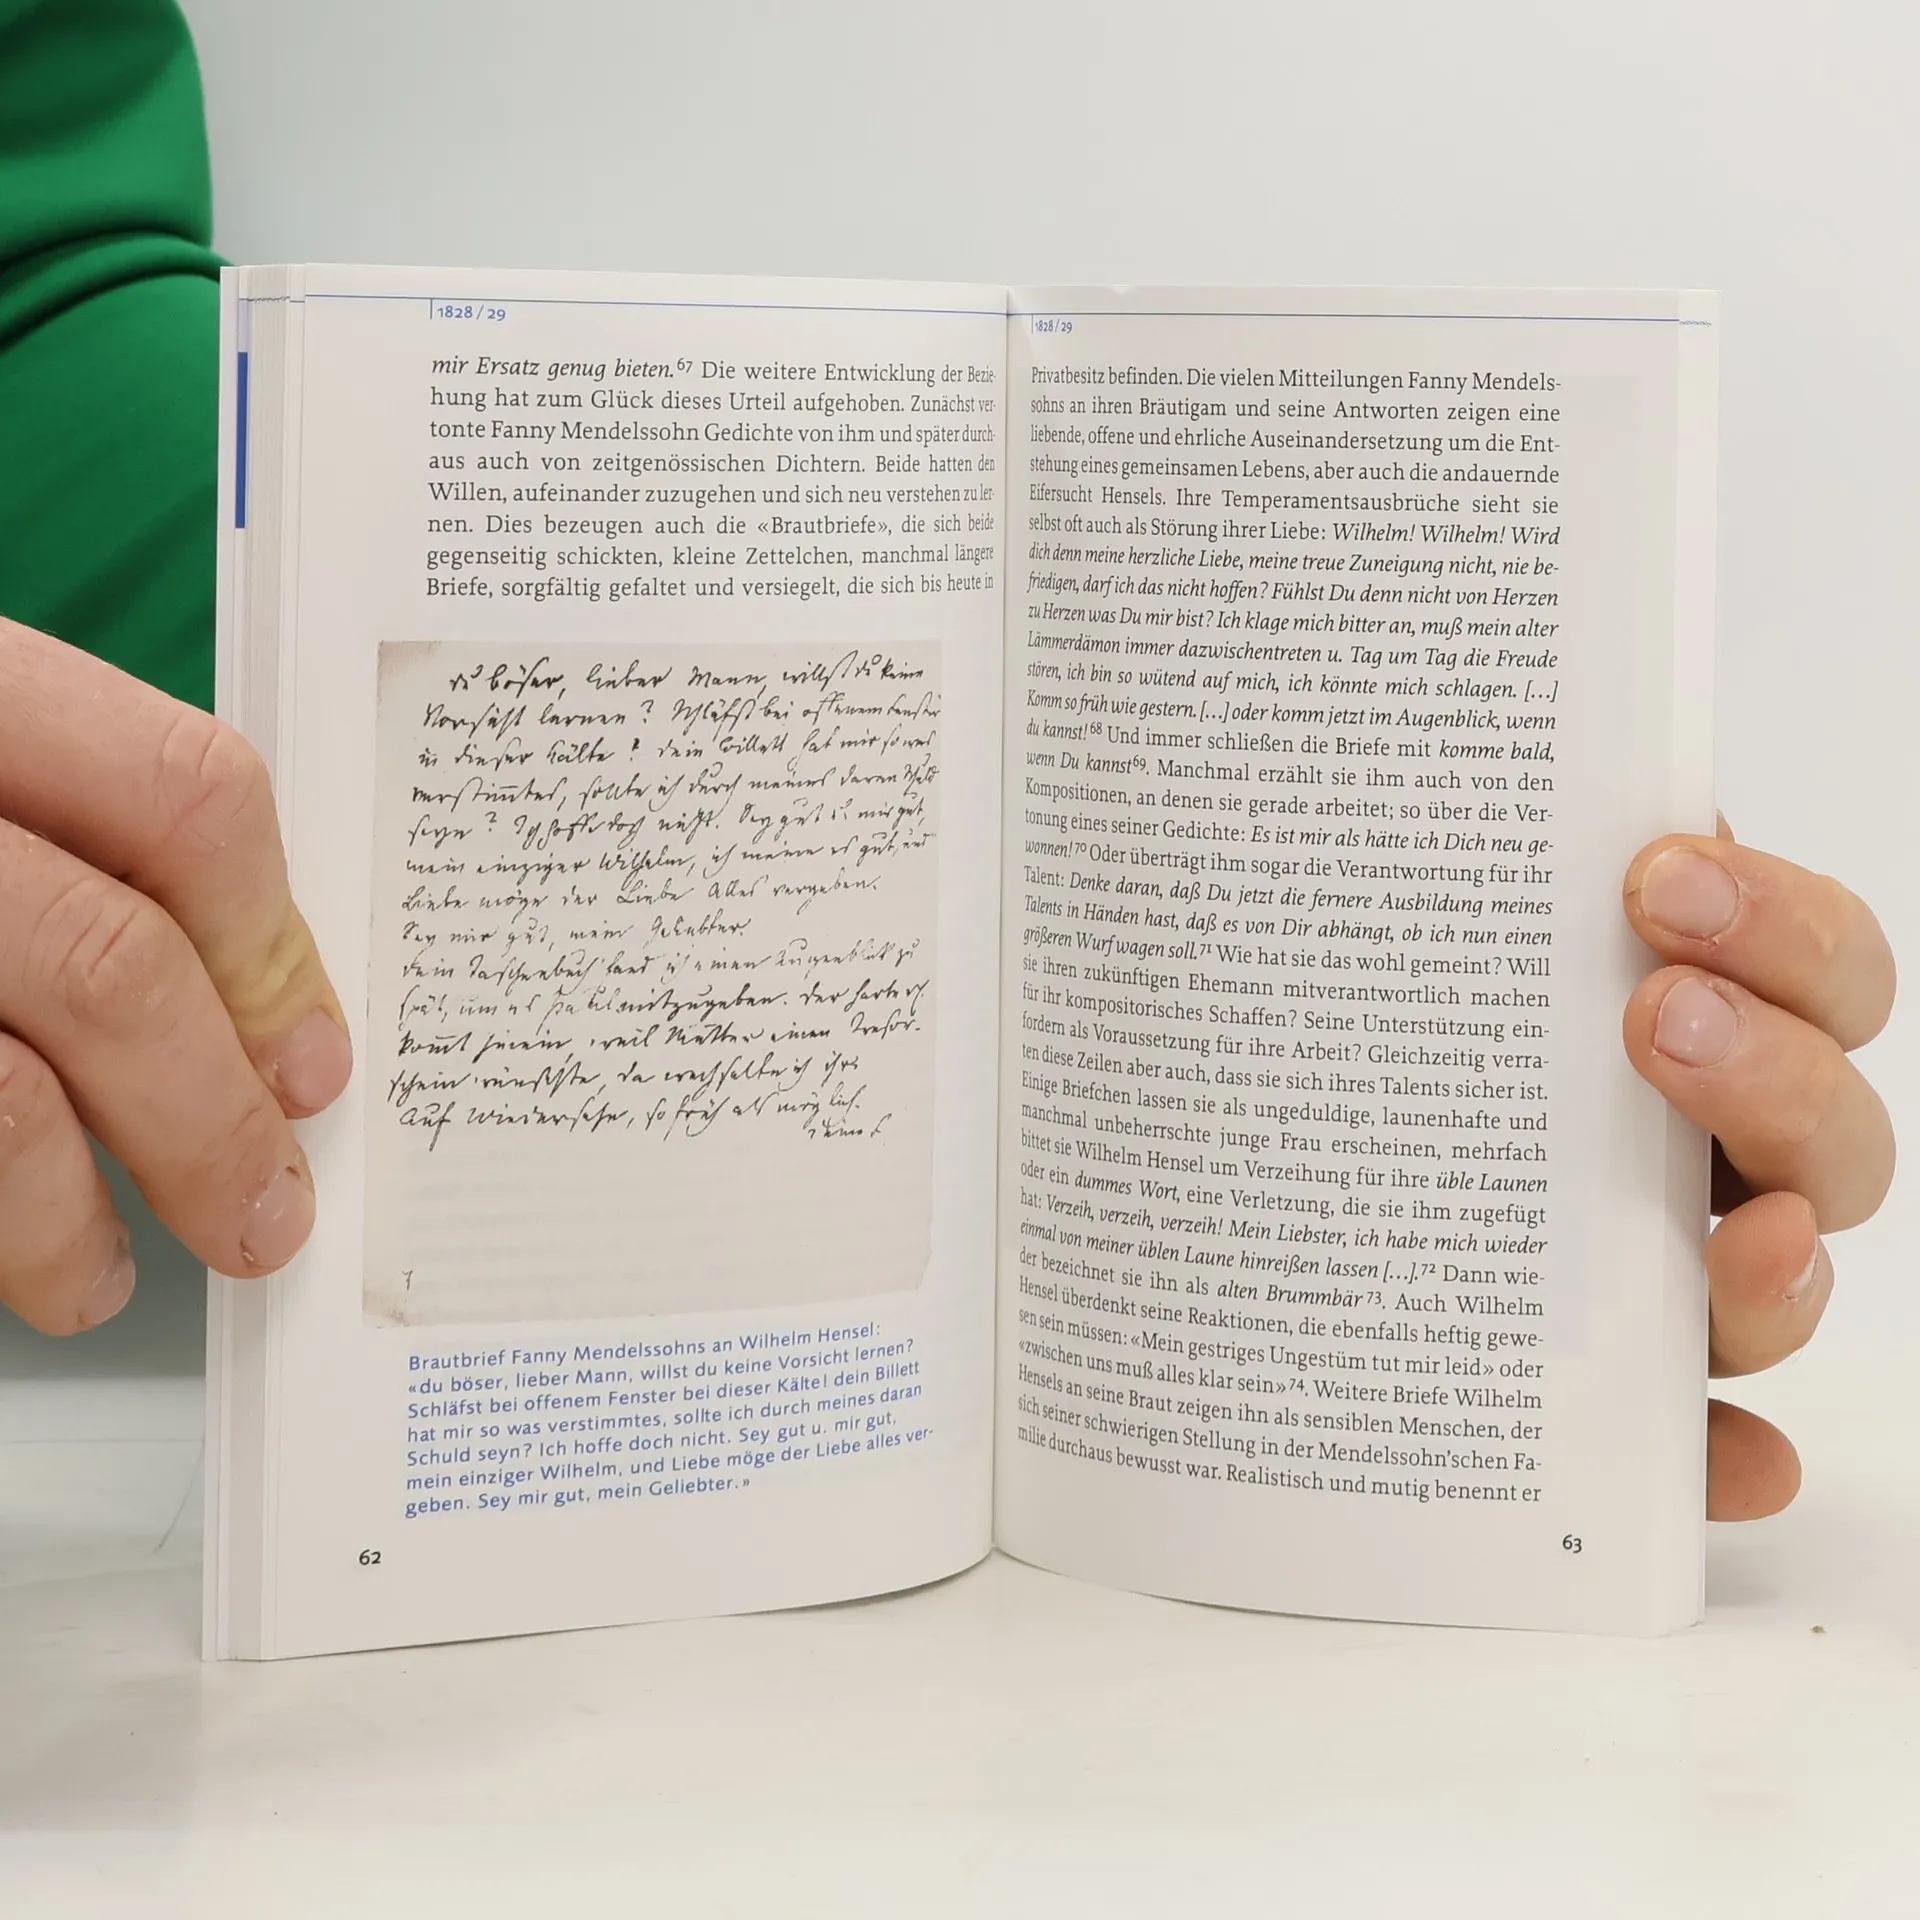 1828 / 29
mir Ersatz genug bieten.⁶⁷ Die weitere Entwicklung der Bezie-
hung hat zum Glück dieses Urteil aufgehoben. Zunächst ver-
tonte Fanny Mendelssohn Gedichte von ihm und später durch-
aus auch von zeitgenössischen Dichtern. Beide hatten den
Willen, aufeinander zuzugehen und sich neu verstehen zu ler-
nen. Dies bezeugen auch die «Brautbriefe», die sich beide
gegenseitig schickten, kleine Zettelchen, manchmal längere
Briefe, sorgfältig gefaltet und versiegelt, die sich bis heute in
du böser, lieber Mann, willst du keine
Vorsicht lernen? Schläfst bei offenem Fenster
in dieser Kälte! dein Billett hat mir so was
verstimmtes, sollte ich durch meines daran Schuld
seyn? Ich hoffe doch nicht. Sey gut u. mir gut,
mein einziger Wilhelm, ich meine es gut, und
Liebe möge der Liebe Alles vergeben.
Sey mir gut, mein Geliebter.
dein Taschenbuch fand ich einen Augenblick zu
spät, um es mitzugeben. Der
kommt weil Mutter einen Tresor-
schein wünschte, da wechselte ich ihr.
Auf Wiedersehn, so früh als möglich.
7
Brautbrief Fanny Mendelssohns an Wilhelm Hensel:
«du böser, lieber Mann, willst du keine Vorsicht lernen?
Schläfst bei offenem Fenster bei dieser Kälte! dein Billett
hat mir so was verstimmtes, sollte ich durch meines daran
Schuld seyn? Ich hoffe doch nicht. Sey gut u. mir gut,
mein einziger Wilhelm, und Liebe möge der Liebe alles ver-
geben. Sey mir gut, mein Geliebter.»
62
1828 / 29
Privatbesitz befinden. Die vielen Mitteilungen Fanny Mendels-
sohns an ihren Bräutigam und seine Antworten zeigen eine
liebende, offene und ehrliche Auseinandersetzung um die Ent-
stehung eines gemeinsamen Lebens, aber auch die andauernde
Eifersucht Hensels. Ihre Temperamentsausbrüche sieht sie
selbst oft auch als Störung ihrer Liebe: Wilhelm! Wilhelm! Wird
dich denn meine herzliche Liebe, meine treue Zuneigung nicht, nie be-
friedigen, darf ich das nicht hoffen? Fühlst Du denn nicht von Herzen
zu Herzen was Du mir bist? Ich klage mich bitter an, muß mein alter
Lämmerdämon immer dazwischentreten u. Tag um Tag die Freude
stören, ich bin so wütend auf mich, ich könnte mich schlagen. [...]
Komm so früh wie gestern. [...] oder komm jetzt im Augenblick, wenn
du kannst!⁶⁸ Und immer schließen die Briefe mit komme bald,
wenn Du kannst⁶⁹. Manchmal erzählt sie ihm auch von den
Kompositionen, an denen sie gerade arbeitet; so über die Ver-
tonung eines seiner Gedichte: Es ist mir als hätte ich Dich neu ge-
wonnen!⁷⁰ Oder überträgt ihm sogar die Verantwortung für ihr
Talent: Denke daran, daß Du jetzt die fernere Ausbildung meines
Talents in Händen hast, daß es von Dir abhängt, ob ich nun einen
größeren Wurf wagen soll.⁷¹ Wie hat sie das wohl gemeint? Will
sie ihren zukünftigen Ehemann mitverantwortlich machen
für ihr kompositorisches Schaffen? Seine Unterstützung ein-
fordern als Voraussetzung für ihre Arbeit? Gleichzeitig verra-
ten diese Zeilen aber auch, dass sie sich ihres Talents sicher ist.
Einige Briefchen lassen sie als ungeduldige, launenhafte und
manchmal unbeherrschte junge Frau erscheinen, mehrfach
bittet sie Wilhelm Hensel um Verzeihung für ihre üble Launen
oder ein dummes Wort, eine Verletzung, die sie ihm zugefügt
hat: Verzeih, verzeih, verzeih! Mein Liebster, ich habe mich wieder
einmal von meiner üblen Laune hinreißen lassen [...].⁷² Dann wie-
der bezeichnet sie ihn als alten Brummbär⁷³. Auch Wilhelm
Hensel überdenkt seine Reaktionen, die ebenfalls heftig gewe-
sen sein müssen: «Mein gestriges Ungestüm tut mir leid» oder
«zwischen uns muß alles klar sein»⁷⁴. Weitere Briefe Wilhelm
Hensels an seine Braut zeigen ihn als sensiblen Menschen, der
sich seiner schwierigen Stellung in der Mendelssohn'schen Fa-
milie durchaus bewusst war. Realistisch und mutig benennt er
63